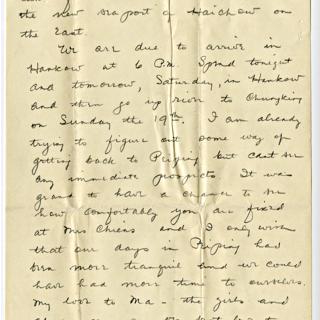 the new seaport of Haichow on
the East.
We are due to arrive in
Hankow at 6 P.M. Spend tonight
and tomorrow, Saturday, in Hankow
and then go up river to Chungking
on Sunday the 19th. I am already
trying to figure out some way of
getting back to Peiping but cant see
any immediate prospects. It was
grand to have a chance to see
how comfortably you are fixed
at Mrs and I only wish
that our days in Peiping had
been more tranquil and we could
have had more time to ourselves.
My love to Ma - the girls and